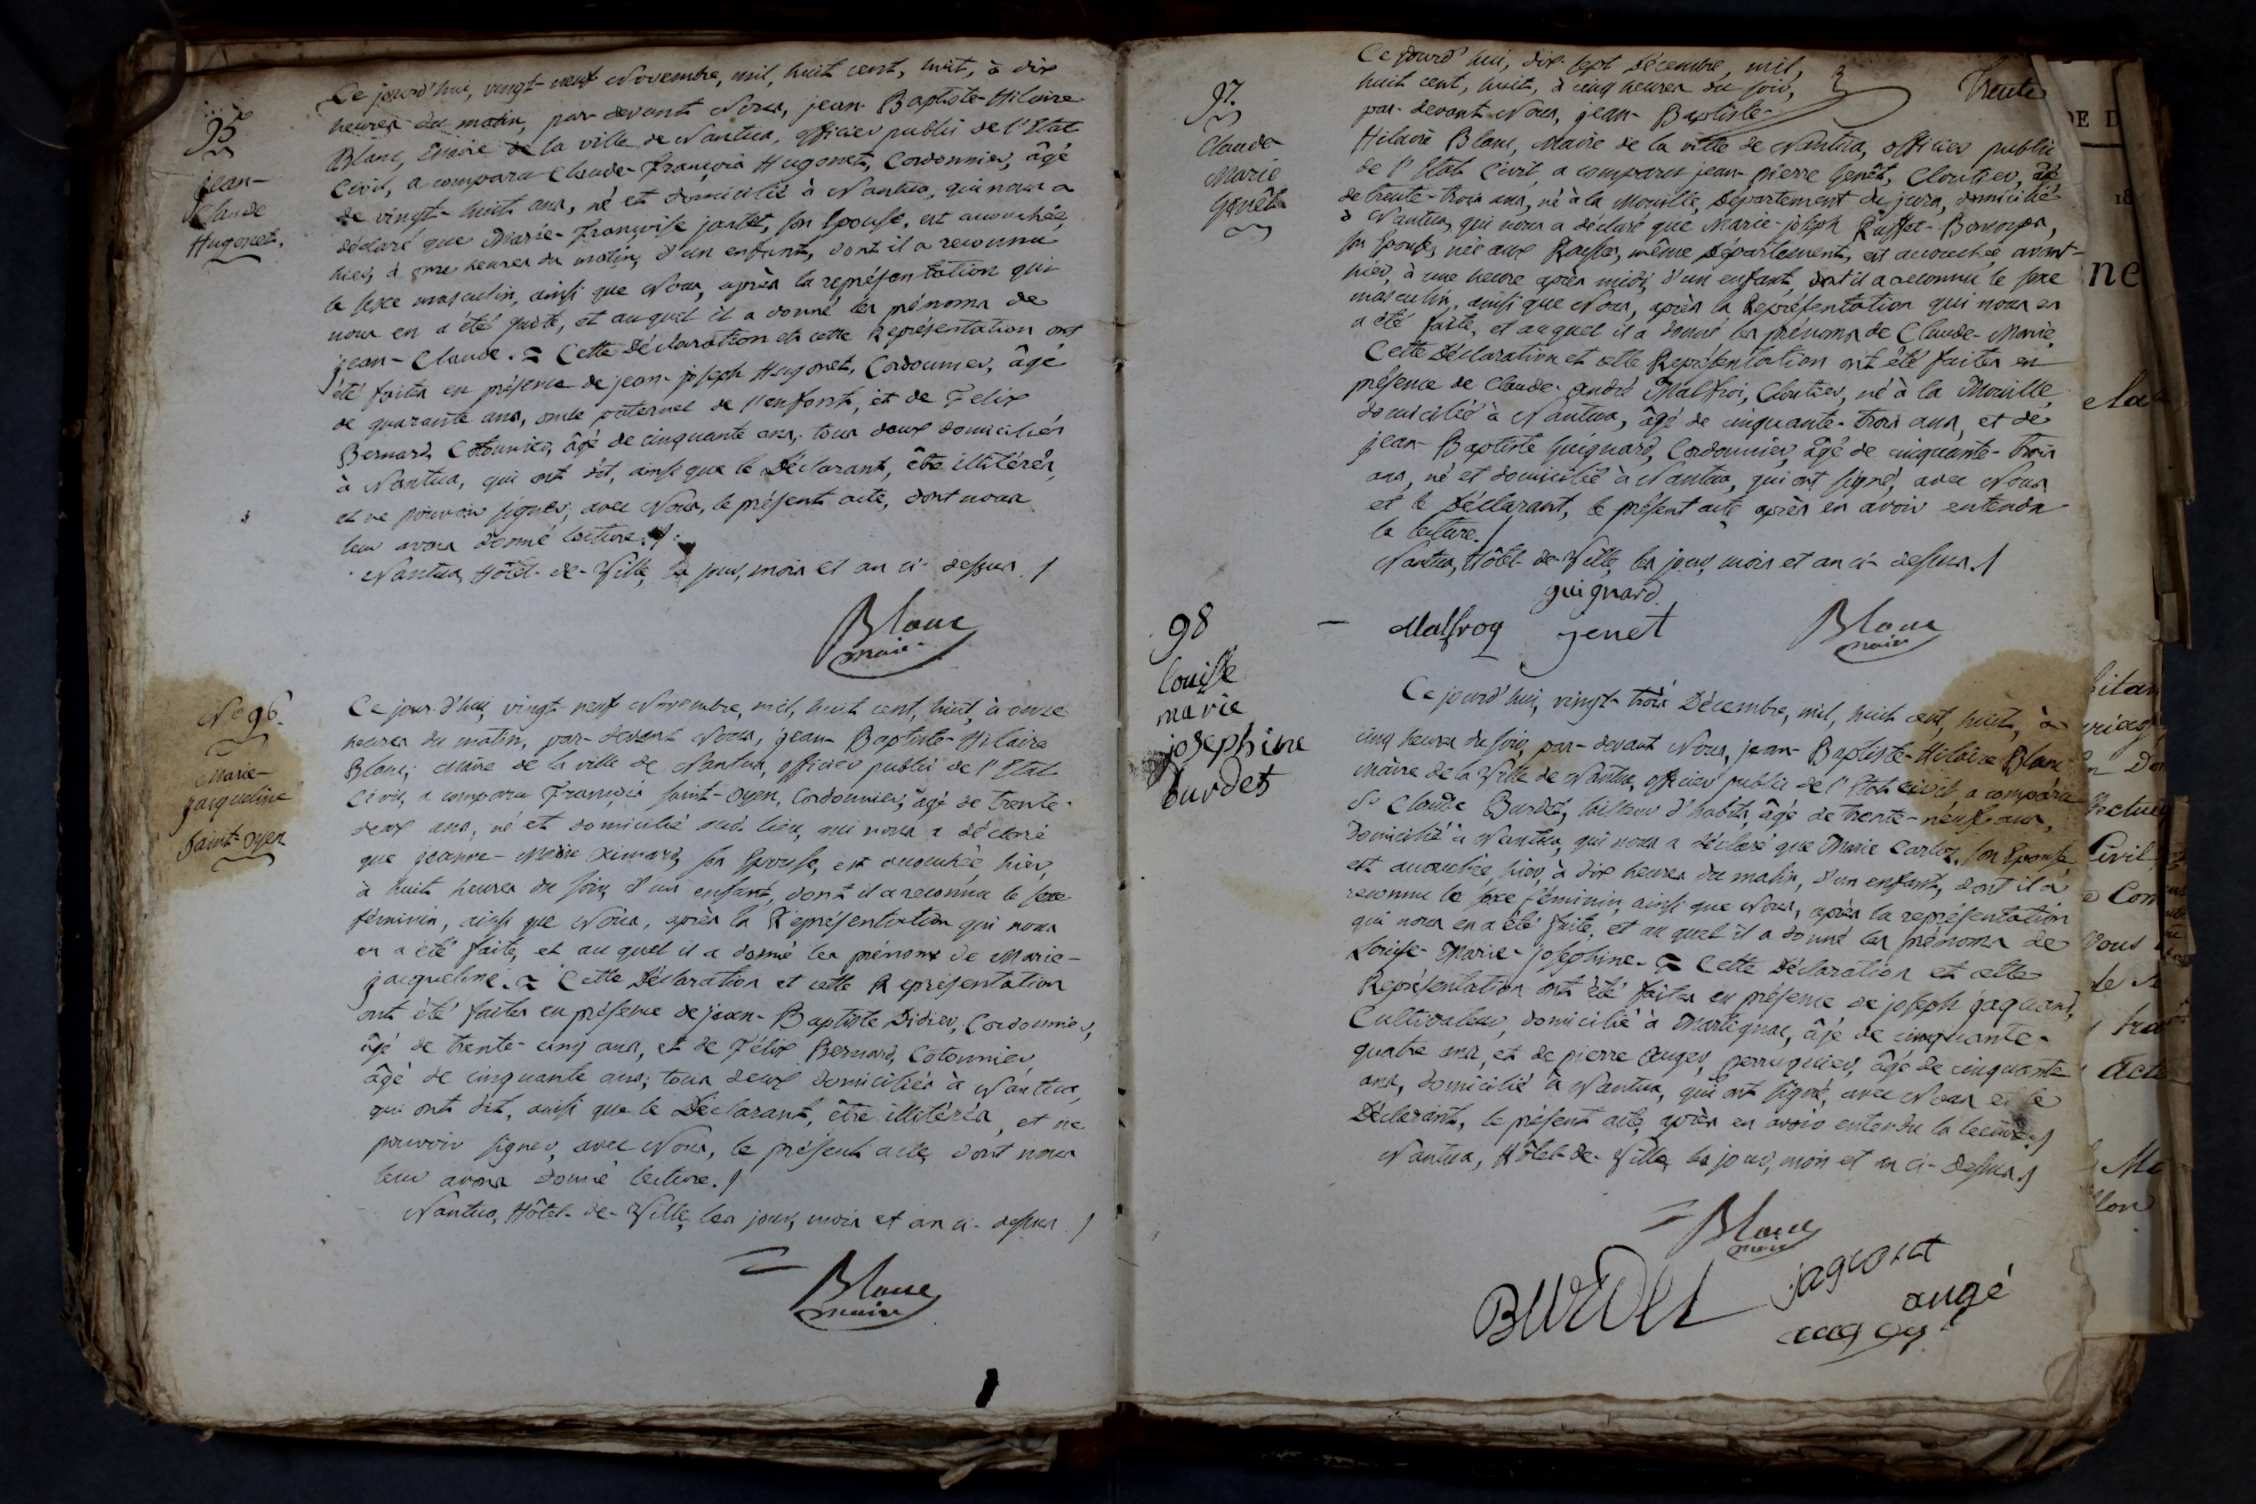 95
jean-
Claude
Hugonet.
Ce jourd'hui, vingt-neuf Novembre, mil, huit cent, huit, à dix
heures du matin, par-devant Nous, jean-Baptiste-Hilaire
Blanc, Maire de la ville de Nantua, officier public de l'Etat
Civil, a comparu Claude-françois Hugonet, Cordonnier, âgé
de vingt-huit ans, né et domicilié à Nantua, qui nous a
déclaré que Marie-françoise jantet, son Epouse, est accouchée,
hier, à onze heures du matin, d'un enfant, dont il a reconnu
le sexe masculin, ainsi que Nous, après la représentation qui
nous en a été faite, et auquel il a donné les prénoms de
jean-Claude. = Cette Déclaration et cette Représentation ont
été faites en présence de jean-joseph Hugonet, Cordonnier, âgé
de quarante ans, oncle paternel de l'enfant, et de Felix
Bernard, Cotonnier, âgé de cinquante ans, tous deux domiciliés
à Nantua, qui ont dit, ainsi que le Déclarant, être illitérés,
et ne pouvoir signer, avec Nous, le présent acte, dont nous
leur avons donné lecture.
Nantua, Hôtel-de-Ville, les jour, mois et an ci-dessus.
Blanc
maire
No 96.
Marie-
jacqueline
Saint-oyen
Ce jour-d'hui, vingt-neuf Novembre, mil, huit cent, huit, à onze
heures du matin, par-devant Nous, jean-Baptiste-Hilaire
Blanc, Maire de la ville de Nantua, officier public de l'Etat
Civil, a comparu françois Saint-oyen, Cordonnier, âgé de trente-
deux ans, né et domicilié aud. lieu, qui nous a déclaré
que jeanne-Marie son Epouse, est accouchée hier,
à huit heures du soir, d'un enfant, dont il a reconnu le sexe
féminin, ainsi que Nous, après la Représentation qui nous
en a été faite, et auquel il a donné les prénoms de Marie-
jacqueline. = Cette Déclaration et cette Représentation
ont été faites en présence de jean-Baptiste Didier, Cordonnier,
âgé de trente-cinq ans, et de Félix Bernard, Cotonnier
âgé de cinquante ans; tous deux domiciliés à Nantua,
qui ont dit, ainsi que le Déclarant, être illitérés, et ne
pouvoir signer, avec Nous, le présent acte, dont nous
leur avons donné lecture.
Nantua, Hôtel-de-Ville, les jour, mois et an ci-dessus.
Blanc
maire
Trente
97.
Claude
Marie
Genêt
Ce jourd'hui, dix-sept Décembre, mil,
huit cent, huit, à cinq heures du soir,
par-devant Nous, jean-Baptiste-
Hilaire Blanc, Maire de la ville de Nantua, officier public
de l'Etat Civil, a comparu jean-pierre Genêt, Cloutier, âgé
de trente-trois ans, né à la Mouille, Département du jura, domicilié
à Nantua, qui nous a déclaré que Marie-joseph
son Epouse, née aux Rousses, même Département, est accouchée avant-
hier, à une heure après midi, d'un enfant, dont il a reconnu le sexe
masculin, ainsi que Nous, après la Représentation qui nous en
a été faite, et auquel il a donné les prénoms de Claude-Marie.
Cette Déclaration et cette Représentation ont été faites en
présence de Claude-andré Malfroi, Cloutier, né à la Mouille,
domicilié à Nantua, âgé de cinquante-trois ans, et de
jean-Baptiste Guignard, Cordonnier, âgé de cinquante-trois
ans, né et domicilié à Nantua, qui ont signé, avec Nous
et le Déclarant, le présent acte après en avoir entendu
la lecture.
Nantua, Hôtel-de-Ville, les jour, mois et an ci-dessus.
guignard
Malfroy genet
Blanc
maire
98
louise
marie
josephine
burdet
Ce jourd'hui, vingt-trois Décembre, mil, huit cent, huit, à
cinq heures du soir, par-devant Nous, jean-Baptiste-Hilaire Blanc
Maire de la Ville de Nantua, officier public de l'Etat civil, a comparu
Sr Claude Burdet, tailleur d'habits, âgé de trente-neuf ans,
domicilié à Nantua, qui nous a déclaré que Marie son Epouse,
est accouchée, hier, à dix heures du matin, d'un enfant, dont il a
reconnu le sexe féminin, ainsi que Nous, après la représentation
qui nous en a été faite, et auquel il a donné les prénoms de
Louise-Marie-josephine. = Cette Déclaration et cette
Représentation ont été faites en présence de joseph jaquand,
Cultivateur, domicilié à Martignac, âgé de cinquante-
quatre ans, et de pierre auger, perruquier, âgé de cinquante
ans, domicilié à Nantua, qui ont signé, avec Nous et le
Déclarant, le présent acte, après en avoir entendu la lecture.
Nantua, Hôtel-de-Ville, les jour, mois et an ci-dessus.
Blanc
maire
Burdet
augé